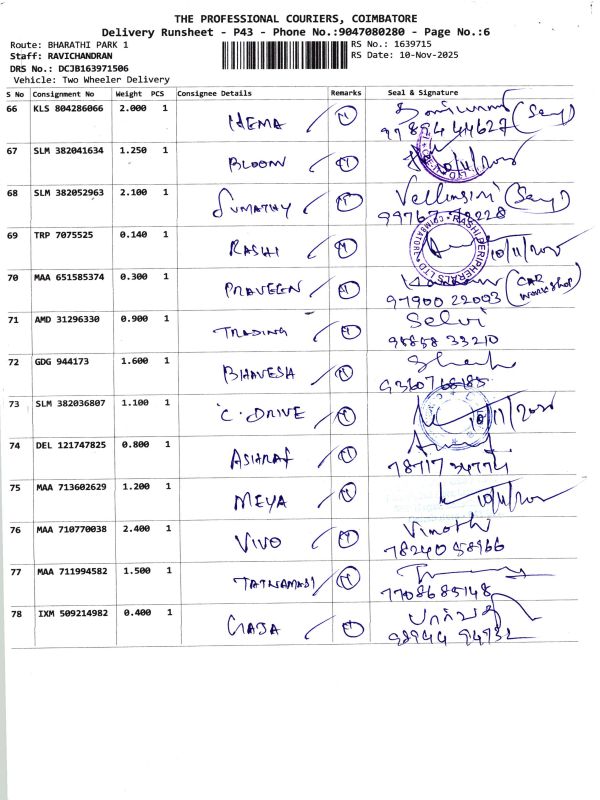 THE PROFESSIONAL COURIERS, COIMBATORE
Delivery Runsheet - P43 - Phone No.:9047080280 - Page No.:6
Route: BHARATHI PARK 1 RS No.: 1639715
Staff: RAVICHANDRAN RS Date: 10-Nov-2025
DRS No.: DCJB163971506
Vehicle: Two Wheeler Delivery
S No Consignment No Weight PCS Consignee Details Remarks Seal & Signature
66 KLS 804286066 2.000 1 HEMA
67 SLM 382041634 1.250 1 BLOOM 10/11/2025
68 SLM 382052963 2.100 1 SUMATHY
69 TRP 7075525 0.140 1 RASHI RASHI PERIPHERALS LTD COIMBATORE 10/11/2025
70 MAA 651585374 0.300 1 PRAVEEN
97900 22003 (CAR WORKSHOP)
71 AMD 31296330 0.900 1 TRADING Selvi
98858 33210
72 GDG 944173 1.600 1 BHAVESH
73 SLM 382036807 1.100 1 C. DRIVE 10/11/2025
74 DEL 121747825 0.800 1 ASHRAF
78717 34774
75 MAA 713602629 1.200 1 MEYA 10/11/2025
76 MAA 710770038 2.400 1 VIVO Vinothi
78240 58966
77 MAA 711994582 1.500 1
7708685148
78 IXM 509214982 0.400 1
98944 94732